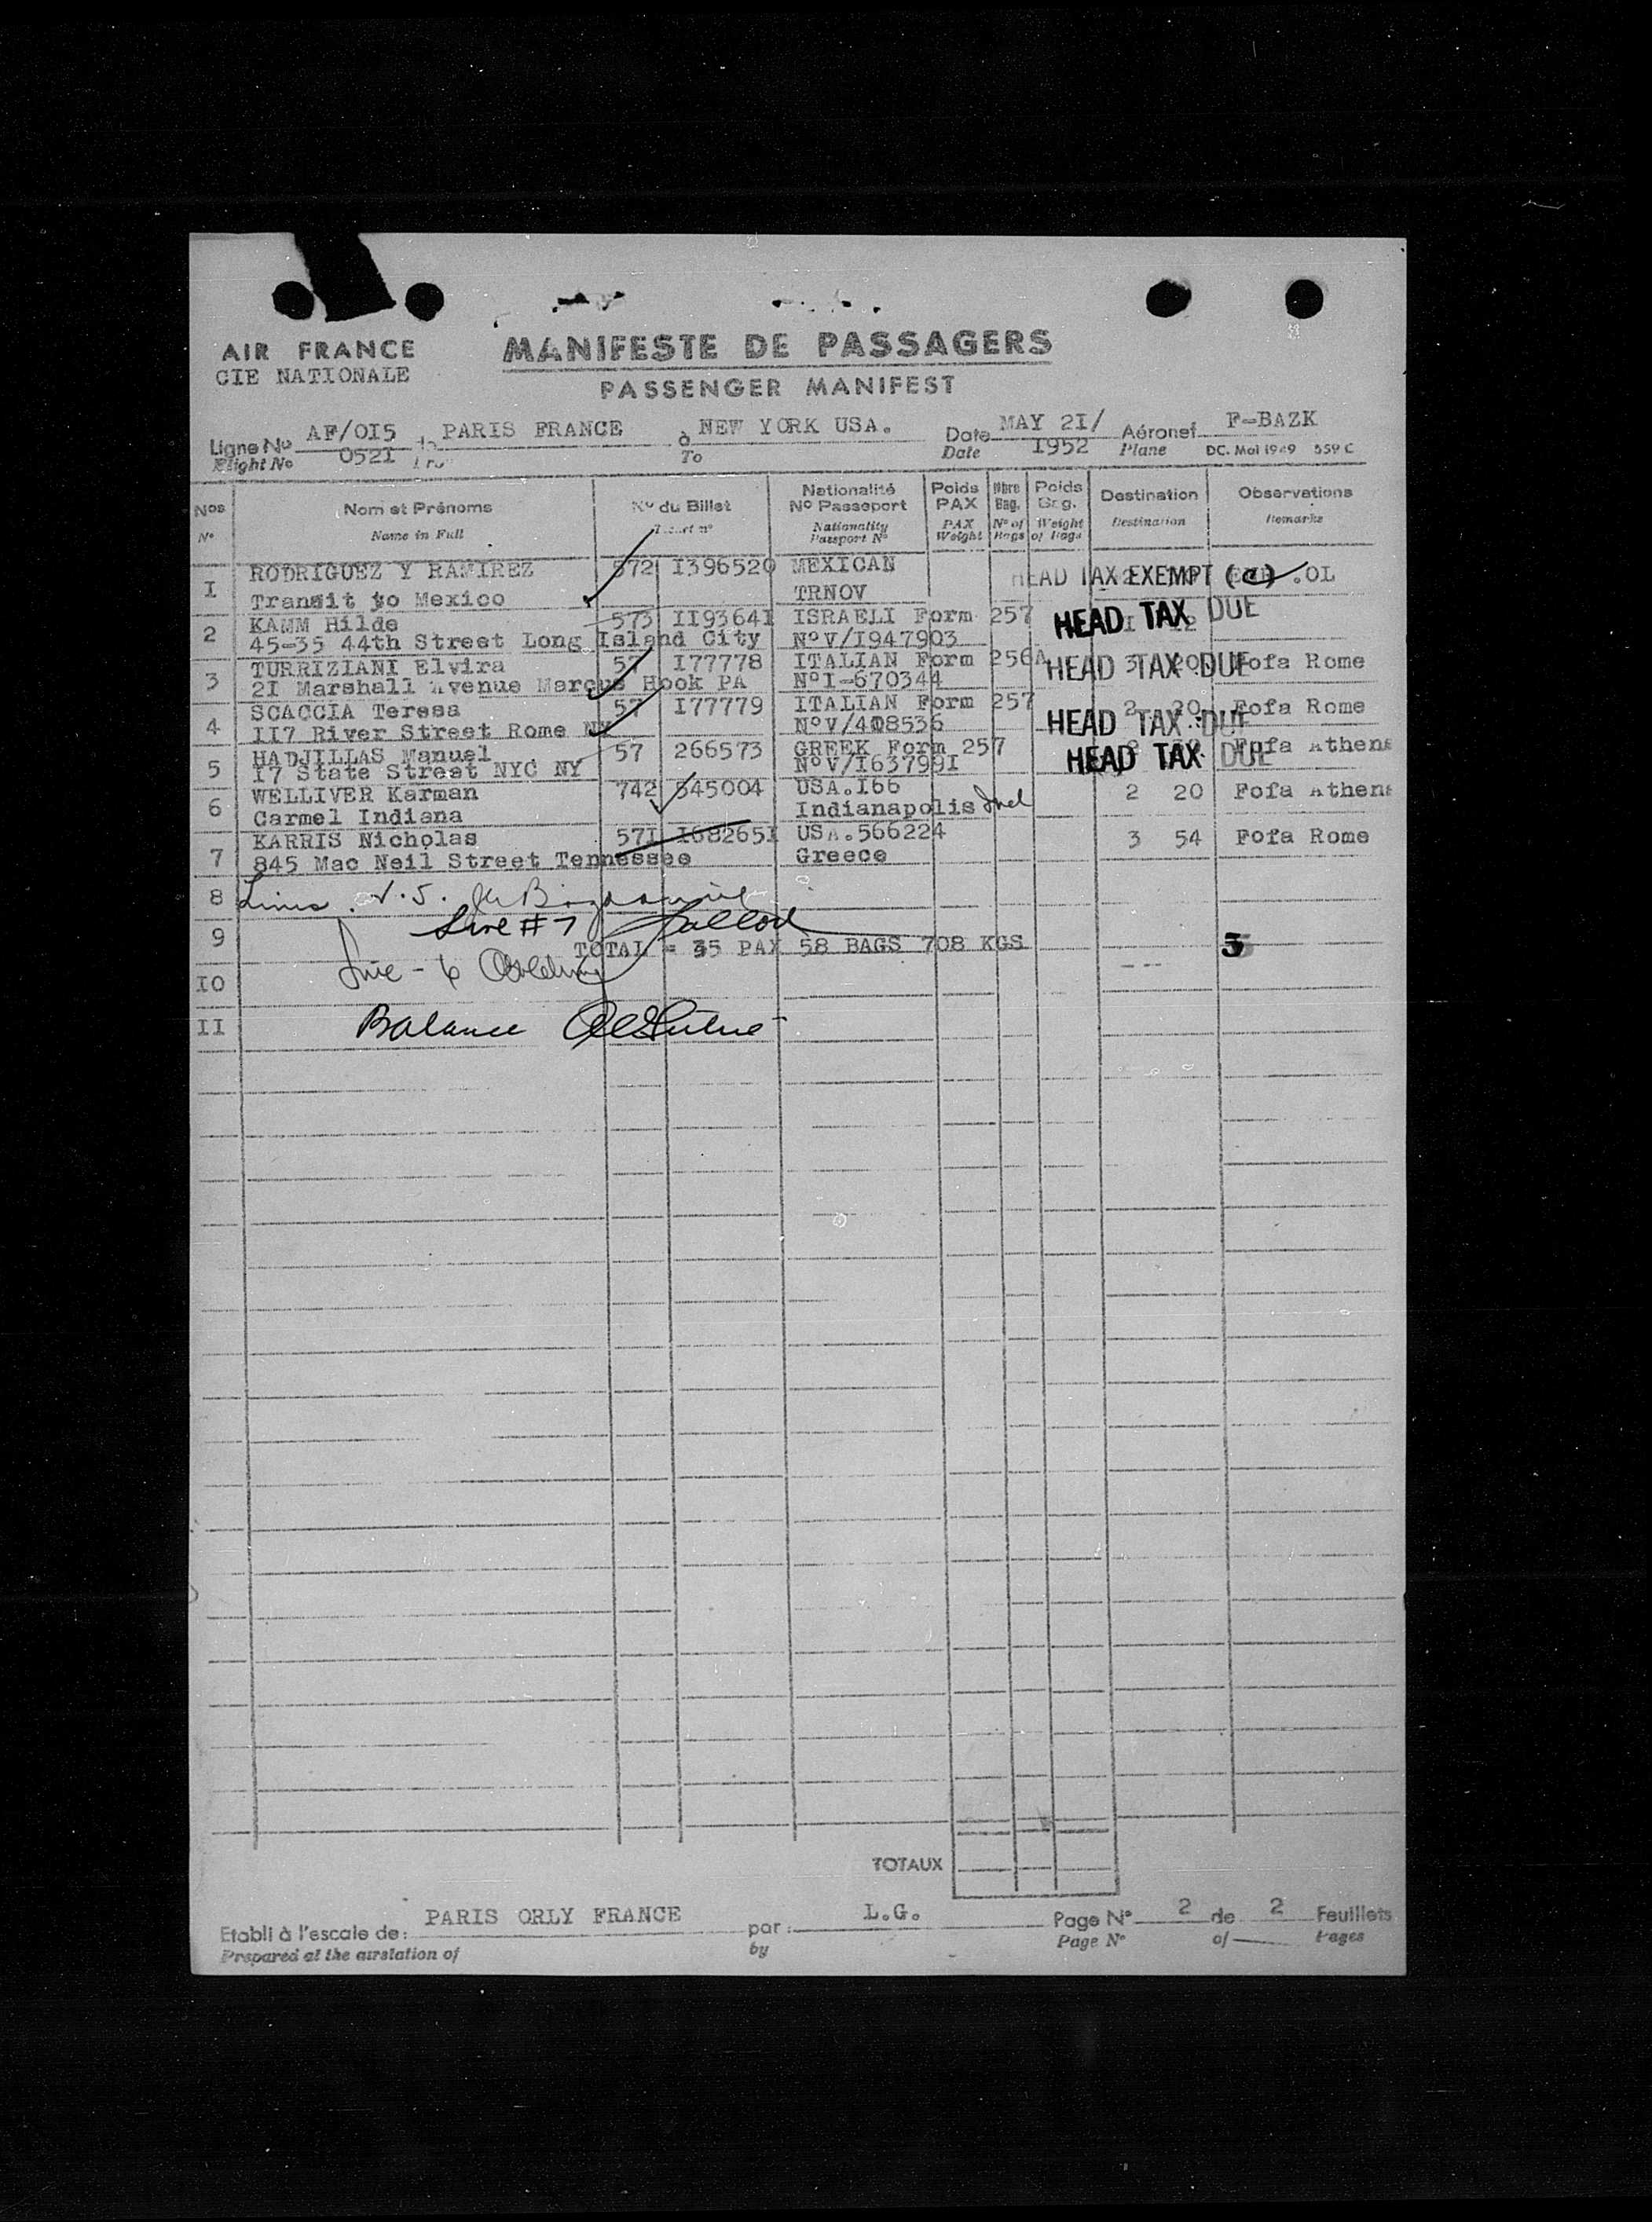 AIR FRANCE
CIE NATIONALE
MANIFESTE DE PASSAGERS
PASSENGER MANIFEST
Ligne No AF/OI5 PARIS FRANCE à NEW YORK USA. Date MAY 2I/ Aéronef F-BAZK
Flight No 0521 To Date I952 Plane DC. Mai 1949 559 C
Nos Nom et Prénoms No du Billet Nationalité No Passeport Poids PAX Nbre Bag. Poids Bag. Destination Observations
No Name in Full Nationality Passport No PAX Weight No of Bags Weight of Bags Destination Remarks
I RODRIGUEZ Y RAMIREZ 572 I396520 MEXICAN HEAD TAX EXEMPT (a) .OL
Transit to Mexico TRNOV
2 KAMM Hilde 573 II9364I ISRAELI Form 257 HEAD TAX DUE
45-35 44th Street Long Island City No V/I947903
3 TURRIZIANI Elvira 57 I77778 ITALIAN Form 256A HEAD TAX DUE Fofa Rome
2I Marshall Avenue Marcus Hook PA No I-670344
4 SCACCIA Teresa 57 I77779 ITALIAN Form 257 2 20 Fofa Rome
II7 River Street Rome NY No V/408536 HEAD TAX DUE
5 HADJILLAS Manuel 57 266573 GREEK Form 257 HEAD TAX DUE Fofa Athens
I7 State Street NYC NY No V/I63799I
6 WELLIVER Karman 742 545004 USA.I66 2 20 Fofa Athens
Carmel Indiana Indianapolis Ind
7 KARRIS Nicholas 57I I68265I USA.566224 3 54 Fofa Rome
845 Mac Neil Street Tennessee Greece
8
9 Line #7
TOTAL = 35 PAX 58 BAGS 708 KGS
IO
II Balance
TOTAUX
Etabli à l'escale de: PARIS ORLY FRANCE par: L.G. Page No 2 de 2 Feuillets
Prepared at the airstation of by Page No of Pages